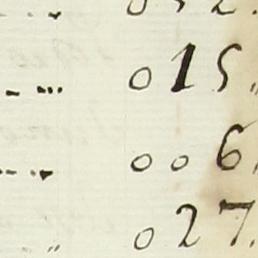 015
006
027